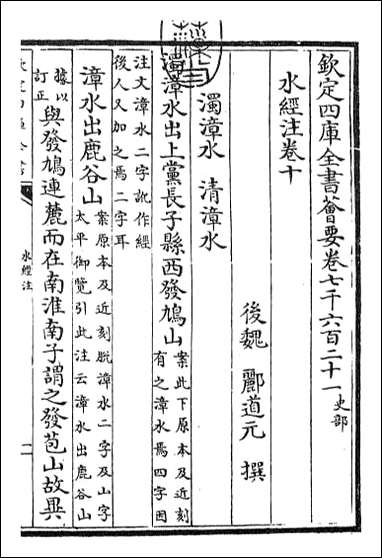 欽定四庫全書薈要卷七千六百二十一史部
水經注卷十
後魏 酈道元 撰
濁漳水 清漳水
濁漳水出上黨長子縣西發鳩山案此下原本及近刻
有之漳水焉四字因
注文漳水二字訛作經
後人又加之焉二字耳
漳水出鹿谷山案原本及近刻脱漳水二字及山字
太平御覽引此注云漳水出鹿谷山
據以
訂正與發鳩連麓而在南淮南子謂之發苞山故異
水經注
一